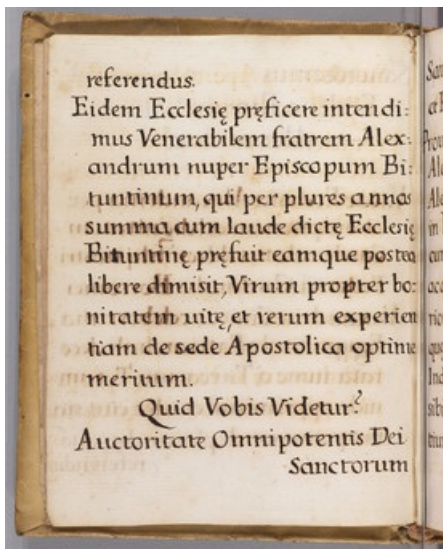 referendus.
Eidem Ecclesię pręficere intendi:
mus Venerabilem fratrem Alex:
andrum nuper Episcopum Bi:
tuntinum, qui per plures annos
summa cum laude dictę Ecclesię
Bituntinę pręfuit eamque postea
libere dimisit, Virum propter bo:
nitatem uitę, et rerum experien
tiam de sede Apostolica optime
meritum.
Quid Vobis Videtur?
Auctoritate Omnipotentis Dei
Sanctorum